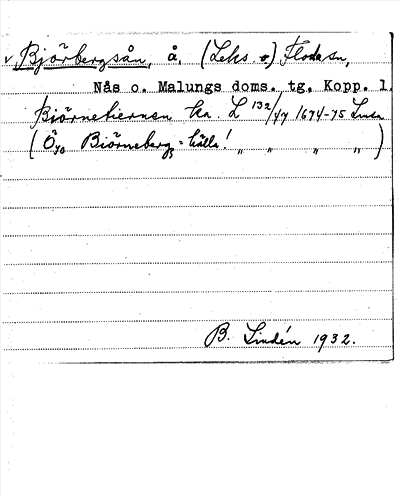 v Björbergsån, å, (Leks o) Floda sn,
Nås o. Malungs doms. tg, Kopp. l.
Biörnebiernen ka. L 132/47 1674-75 Lmsa
(Öyo Biörneberg = källa! " " " ")
B. Lindén 1932.